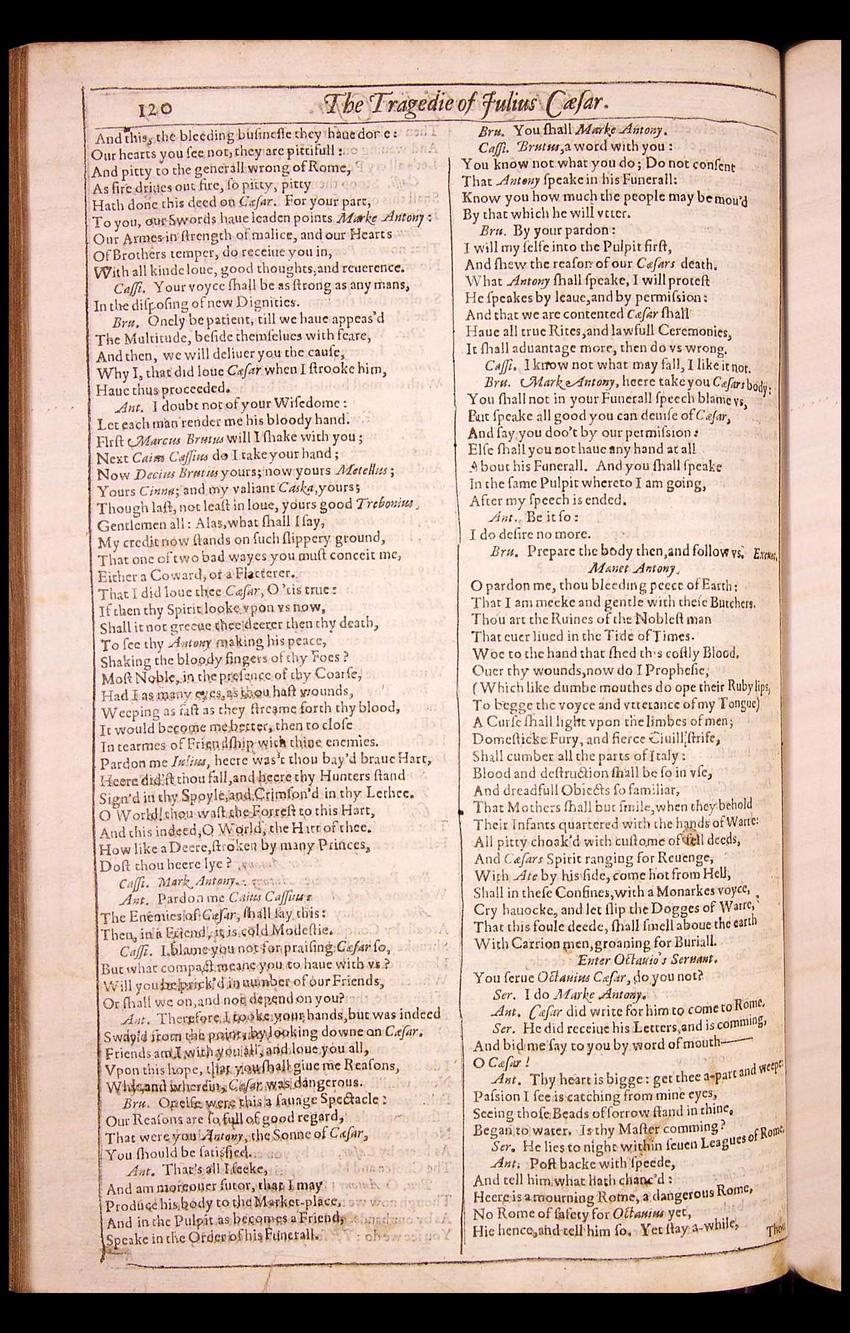 120
The Tragedie of Julius Cæsar.
And this, the bleeding businesse they haue done:
Our hearts you see not, they are pittifull:
And pitty to the generall wrong of Rome,
As fire driues out fire, so pitty, pitty
Hath done this deed on Cæsar. For your part,
To you, our Swords haue leaden points Marke Antony:
Our Armes in strength of malice, and our Hearts
Of Brothers temper, do receiue you in,
With all kinde loue, good thoughts, and reuerence.
Cassi. Your voyce shall be as strong as any mans,
In the disposing of new Dignities.
Bru. Onely be patient, till we haue appeas'd
The Multitude, beside themselues with feare,
And then, we will deliuer you the cause,
Why I, that did loue Cæsar when I strooke him,
Haue thus proceeded.
Ant. I doubt not of your Wisedome:
Let each man render me his bloody hand.
First Marcus Brutus will I shake with you;
Next Caius Cassius do I take your hand;
Now Decius Brutus yours; now yours Metellus;
Yours Cinna; and my valiant Caska, yours;
Though last, not least in loue, yours good Trebonius.
Gentlemen all: Alas, what shall I say,
My credit now stands on such slippery ground,
That one of two bad wayes you must conceit me,
Either a Coward, or a Flatterer.
That I did loue thee Cæsar, O 'tis true:
If then thy Spirit looke vpon vs now,
Shall it not greeue thee deerer then thy death,
To see thy Antony making his peace,
Shaking the bloody fingers of thy Foes?
Most Noble, in the presence of thy Coarse,
Had I as many eyes, as thou hast wounds,
Weeping as fast as they streame forth thy blood,
It would become me better, then to close
In tearmes of Friendship with thine enemies.
Pardon me Iulius, heere was't thou bay'd braue Hart,
Heere did'st thou fall, and heere thy Hunters stand
Sign'd in thy Spoyle, and Crimson'd in thy Lethee.
O World! thou wast the Forrest to this Hart,
And this indeed, O World, the Hart of thee.
How like a Deere, stroken by many Princes,
Dost thou heere lye?
Cassi. Mark Antony.
Ant. Pardon me Caius Cassius:
The Enemies of Cæsar, shall say this:
Then, in a Friend, it is cold Modestie.
Cassi. I blame you not for praising Cæsar so,
But what compact meane you to haue with vs?
Will you be prick'd in number of our Friends,
Or shall we on, and not depend on you?
Ant. Therefore I tooke your hands, but was indeed
Sway'd from the point, by looking downe on Cæsar.
Friends am I with you all, and loue you all,
Vpon this hope, that you shall giue me Reasons,
Why, and wherein, Cæsar was dangerous.
Bru. Or else were this a sauage Spectacle:
Our Reasons are so full of good regard,
That were you Antony, the Sonne of Cæsar,
You should be satisfied.
Ant. That's all I seeke,
And am moreouer sutor, that I may
Produce his body to the Market-place,
And in the Pulpit as becomes a Friend,
Speake in the Order of his Funerall.
Bru. You shall Marke Antony.
Cassi. Brutus, a word with you:
You know not what you do; Do not consent
That Antony speake in his Funerall:
Know you how much the people may be mou'd
By that which he will vtter.
Bru. By your pardon:
I will my selfe into the Pulpit first,
And shew the reason of our Cæsars death.
What Antony shall speake, I will protest
He speakes by leaue, and by permission:
And that we are contented Cæsar shall
Haue all true Rites, and lawfull Ceremonies,
It shall aduantage more, then do vs wrong.
Cassi. I know not what may fall, I like it not.
Bru. Mark Antony, heere take you Cæsars body:
You shall not in your Funerall speech blame vs,
But speake all good you can deuise of Cæsar,
And say you doo't by our permission:
Else shall you not haue any hand at all
About his Funerall. And you shall speake
In the same Pulpit whereto I am going,
After my speech is ended.
Ant. Be it so:
I do desire no more.
Bru. Prepare the body then, and follow vs. Exeunt.
Manet Antony.
O pardon me, thou bleeding peece of Earth:
That I am meeke and gentle with these Butchers.
Thou art the Ruines of the Noblest man
That euer liued in the Tide of Times.
Woe to the hand that shed this costly Blood.
Ouer thy wounds, now do I Prophesie,
(Which like dumbe mouthes do ope their Ruby lips,
To begge the voyce and vtterance of my Tongue)
A Curse shall light vpon the limbes of men;
Domesticke Fury, and fierce Ciuill strife,
Shall cumber all the parts of Italy:
Blood and destruction shall be so in vse,
And dreadfull Obiects so familiar,
That Mothers shall but smile, when they behold
Their Infants quartered with the hands of Warre:
All pitty choak'd with custome of fell deeds,
And Cæsars Spirit ranging for Reuenge,
With Ate by his side, come hot from Hell,
Shall in these Confines, with a Monarkes voyce,
Cry hauocke, and let slip the Dogges of Warre,
That this foule deede, shall smell aboue the earth
With Carrion men, groaning for Buriall.
Enter Octauio's Seruant.
You serue Octauius Cæsar, do you not?
Ser. I do Marke Antony.
Ant. Cæsar did write for him to come to Rome.
Ser. He did receiue his Letters, and is comming,
And bid me say to you by word of mouth——
O Cæsar!
Ant. Thy heart is bigge: get thee a-part and weepe:
Passion I see is catching from mine eyes,
Seeing those Beads of sorrow stand in thine,
Began to water. Is thy Master comming?
Ser. He lies to night within seuen Leagues of Rome.
Ant. Post backe with speede,
And tell him what hath chanc'd:
Heere is a mourning Rome, a dangerous Rome,
No Rome of safety for Octauius yet,
Hie hence, and tell him so. Yet stay a-while,